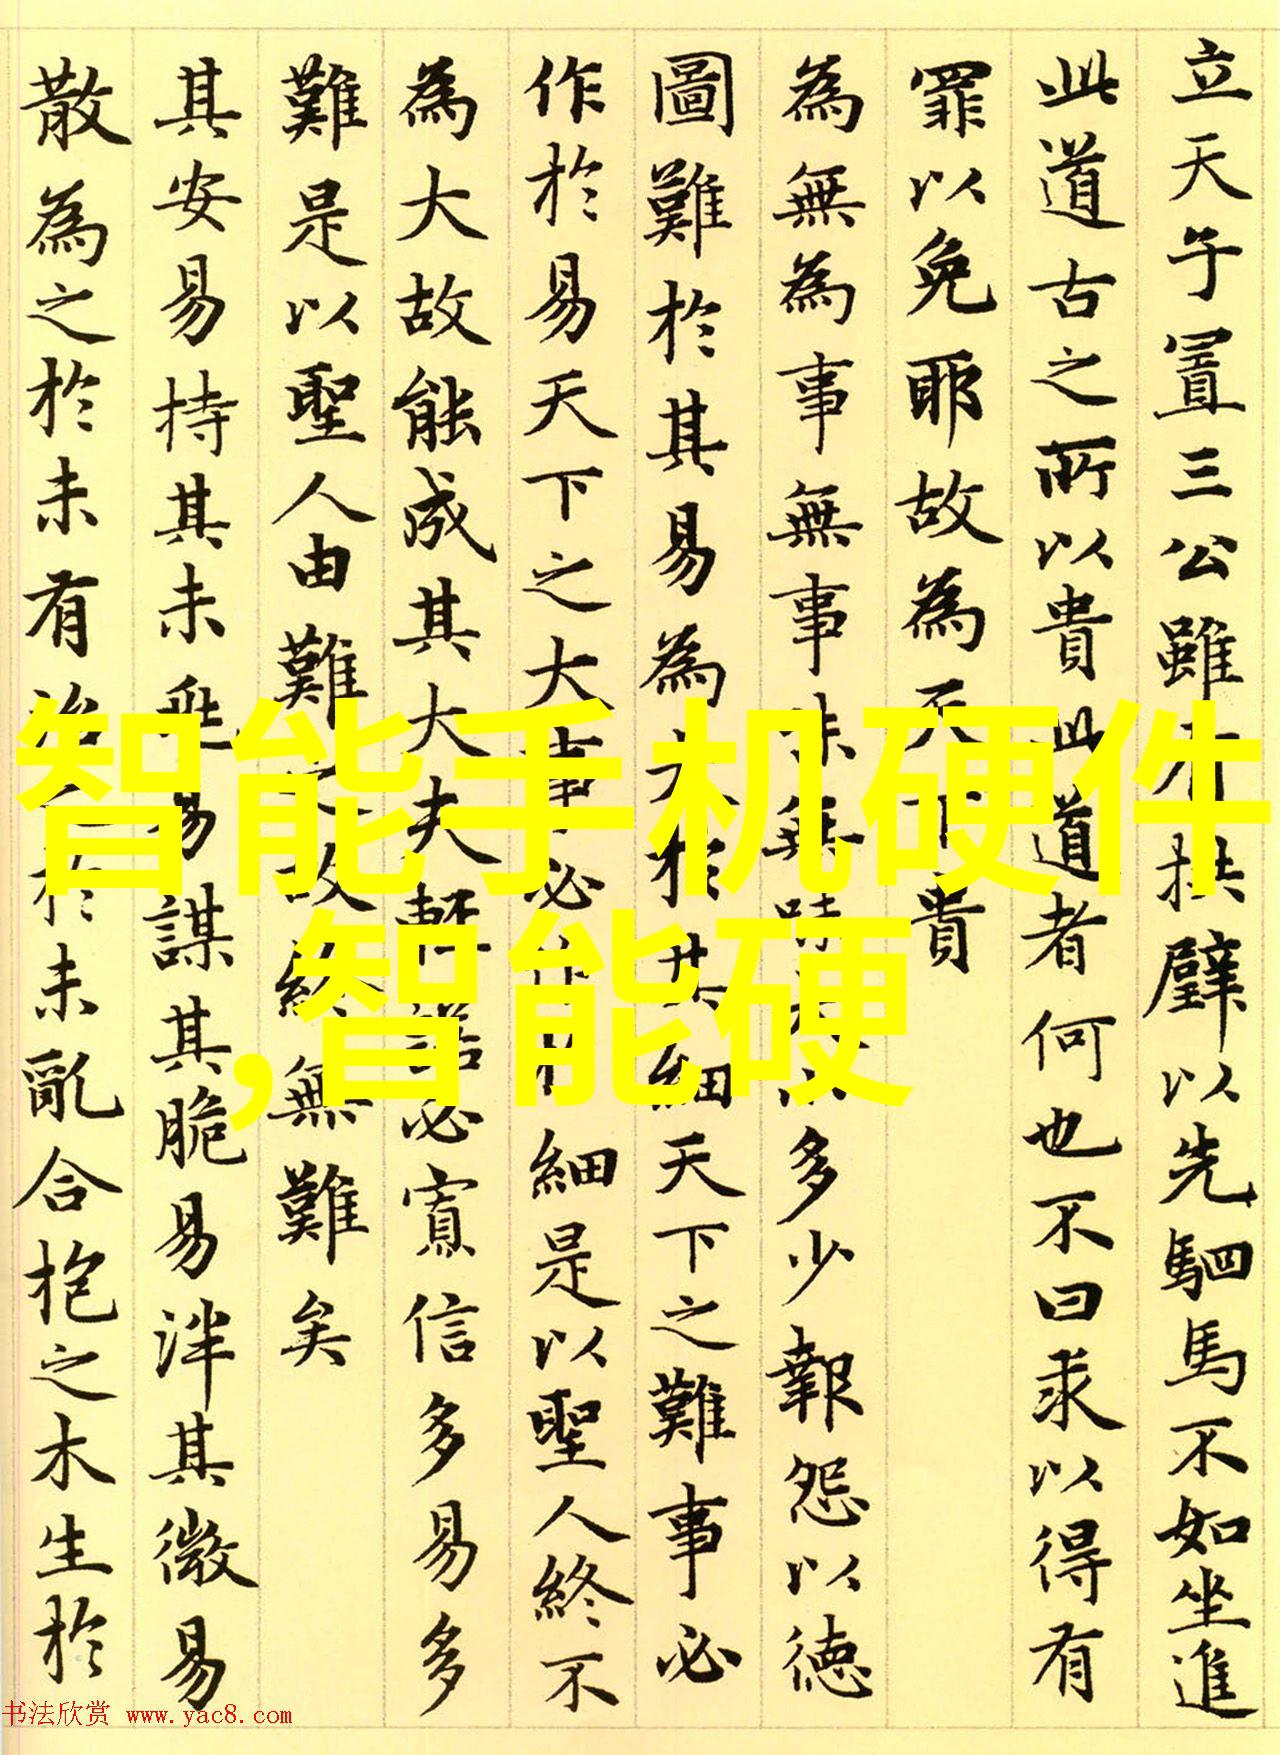 立天子置三公雖有拱璧以先駟馬不如坐進
此道古之所以貴此道者何也不曰求以得有
罪以免耶故為天下貴
為無為事無事味無味大小多少報怨以德
圖難於其易為大於其細天下之難事必
作於易天下之大事必作於細是以聖人終不
為大故能成其大夫輕諾必寡信多易多
難是以聖人由難之故終無難矣
其安易持其未兆易謀其脆易泮其微易
散為之於未有治之於未亂合抱之木生於
智能手机硬件
,智能硬
书法欣赏 www.yac8.com